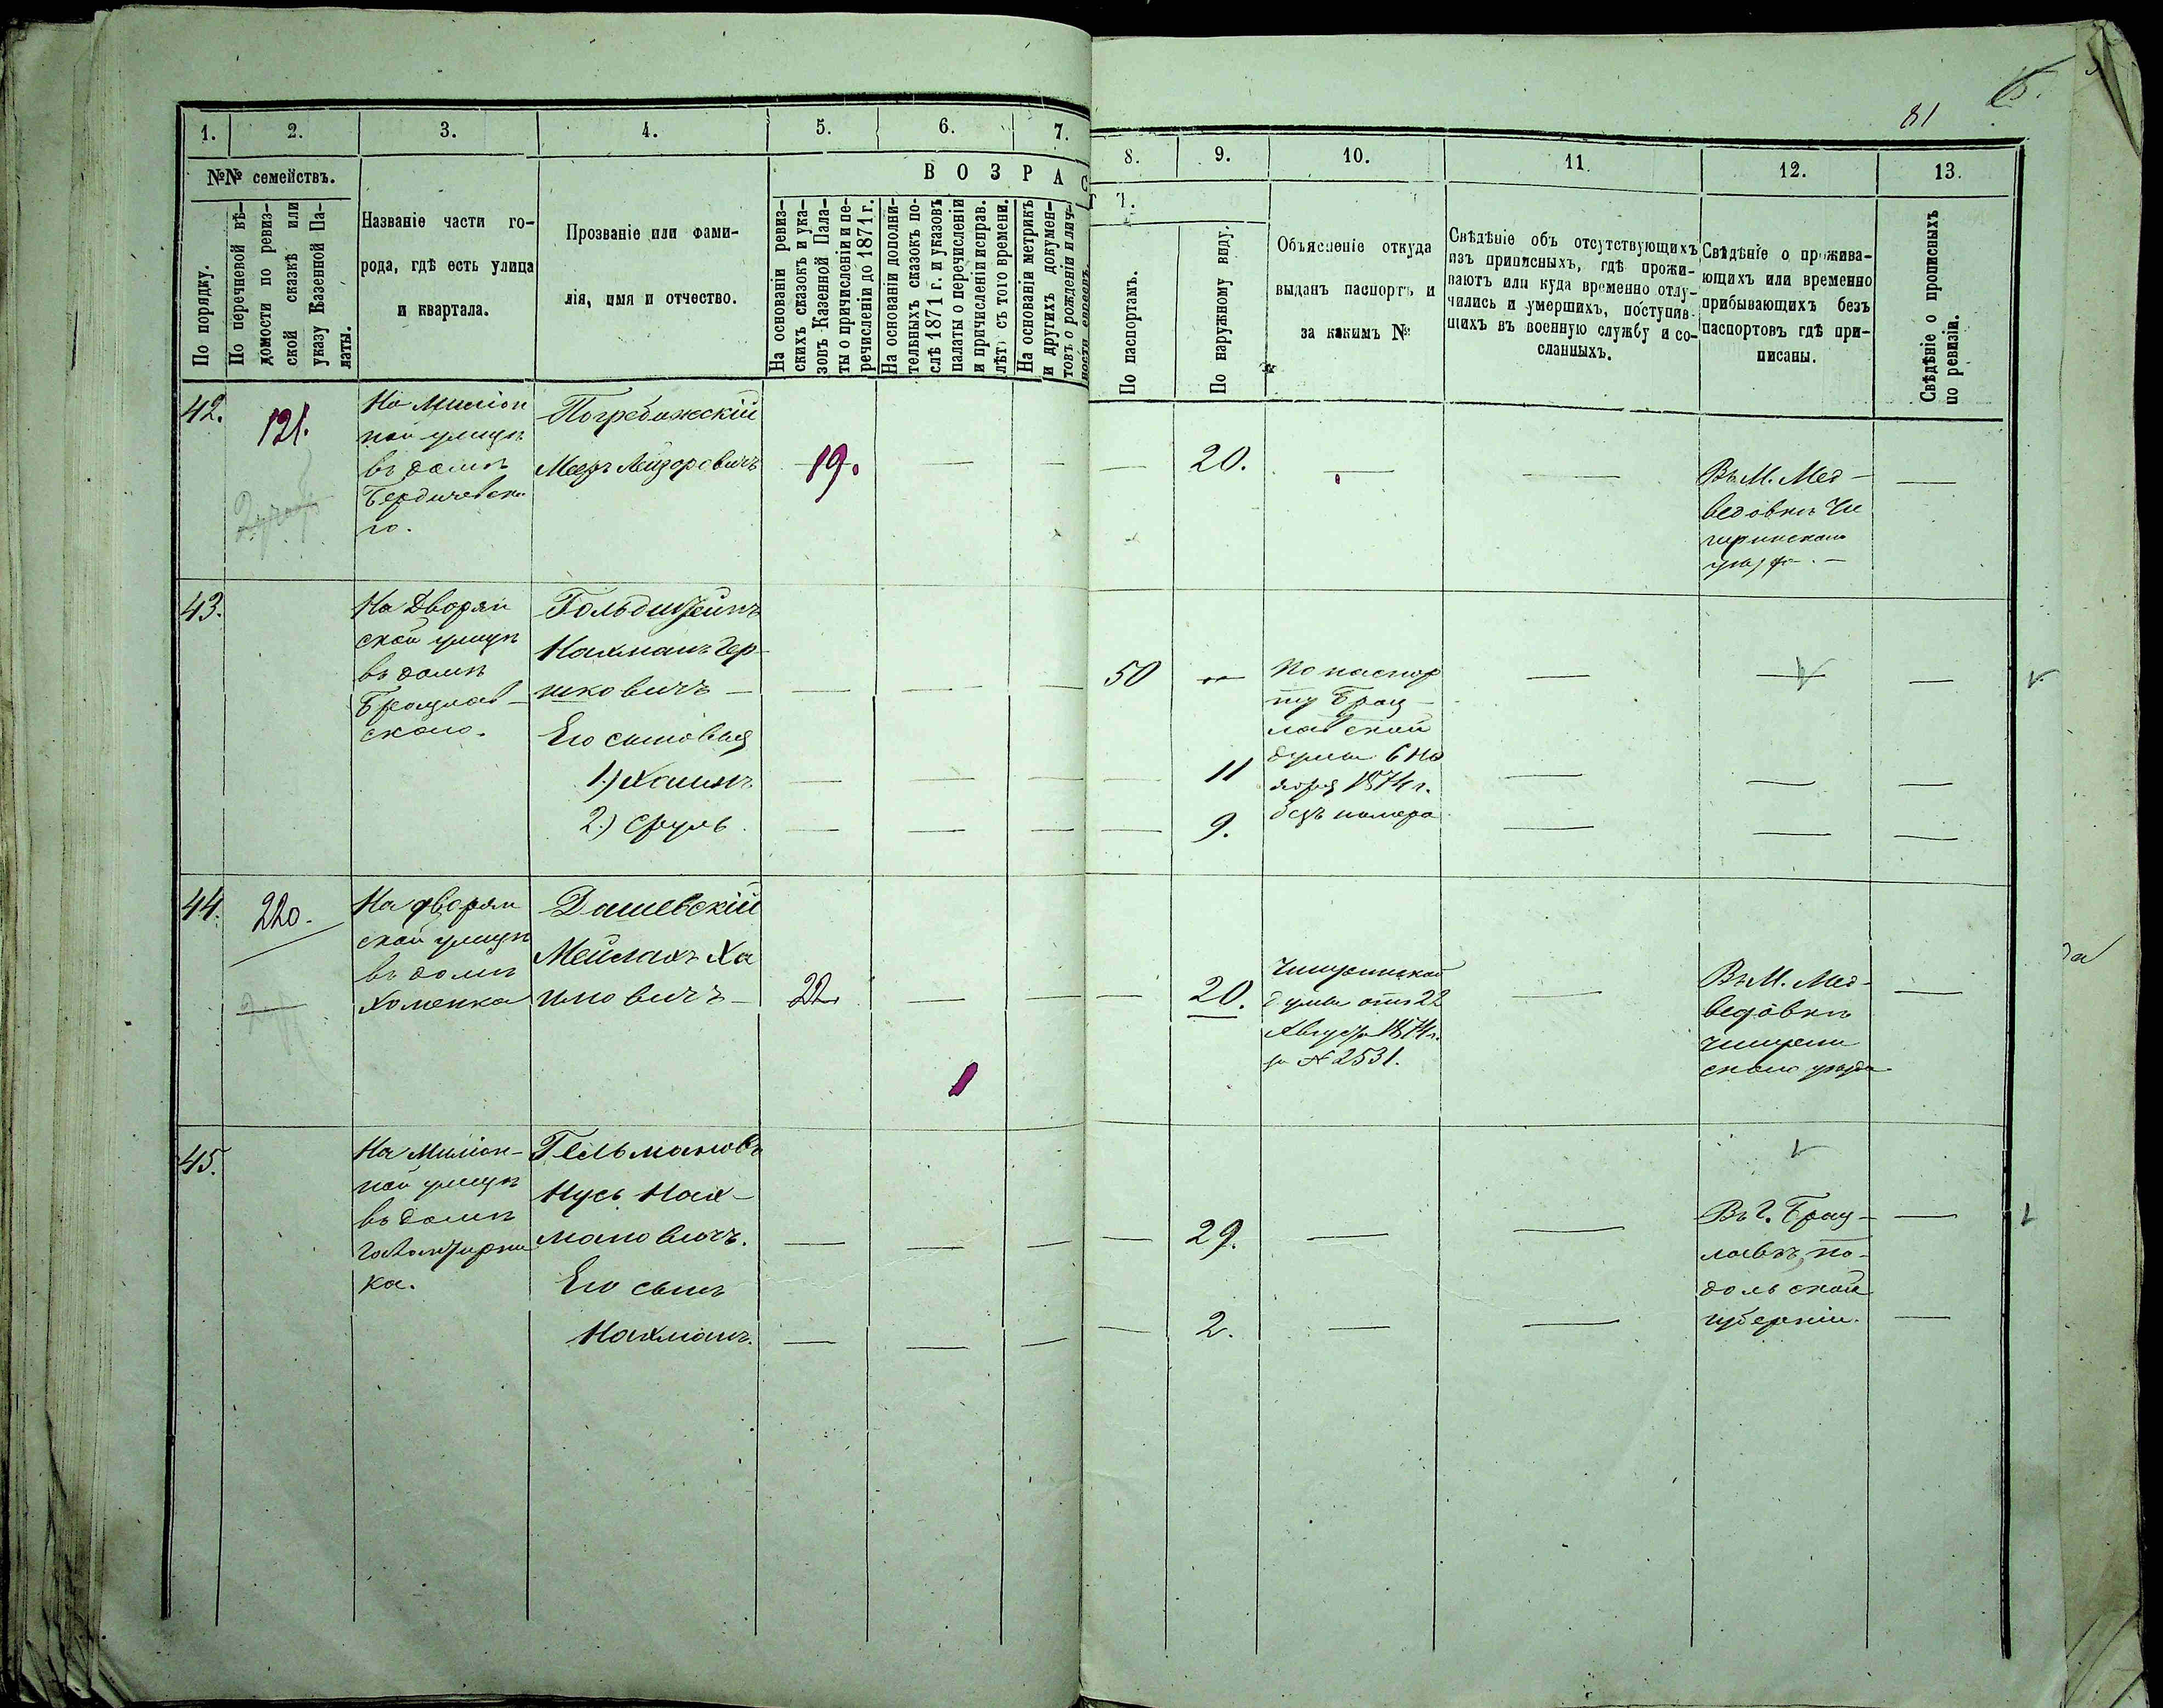 81
1. 2. 3. 4. 5. 6. 7. 8. 9. 10. 11. 12. 13.
№№ семействъ.
По порядку.
По перечневой вѣ-
домости по ревиз-
ской сказкѣ или
указу Казенной Па-
латы.
Названіе части го-
рода, гдѣ есть улица
и квартала.
Прозваніе или фами-
лія, имя и отчество.
ВОЗРАСТЪ.
На основаніи ревиз-
скихъ сказокъ и ука-
зовъ Казенной Пала-
ты о причисленіи и пе-
речисленіи до 1871 г.
На основаніи дополни-
тельныхъ сказокъ по-
слѣ 1871 г. и указовъ
палаты о перечисленіи
и причисленіи исправ.
лѣтъ съ того времени.
На основаніи метрикъ
и другихъ докумен-
товъ о рожденіи и лич-
ности евреевъ.
По паспортамъ.
По наружному виду.
Объясненіе откуда
выданъ паспортъ и
за какимъ №
Свѣдѣніе объ отсутствующихъ
изъ приписныхъ, гдѣ прожи-
ваютъ или куда временно отлу-
чились и умершихъ, поступив-
шихъ въ военную службу и со-
сланныхъ.
Свѣдѣніе о прожива-
ющихъ или временно
прибывающихъ безъ
паспортовъ гдѣ при-
писаны.
Свѣдѣніе о прописныхъ
по ревизіи.
42.
121.
На Миліон
ной улицѣ
въ домѣ
Бердичевска
го.
Погребижскій
Мееръ Лейзоровичъ
19.
20.
Въ М. Мед-
ведовкѣ Чи
гиринскаго
уѣзда. -
43.
На Дворян
ской улицѣ
въ домѣ
Брацлав-
скаго.
Гольдштейнъ
Нахманъ Гер-
шковичъ -
Его сыновья
1.) Хаимъ
2.) Сруль
50
11
9.
По паспор
ту Брац-
лавской
думы 6 Но
ября 1874 г.
безъ номера
44.
220.
На дворян
ской улицѣ
въ домѣ
Хоменка
Дашевскій
Мейлахъ Ха
имовичъ -
22
20.
Чигиринской
думы отъ 22
Августа 1874 г.
за № 2531.
Въ М. Мед-
ведовкѣ
Чигирин
скаго уѣзда
45.
На Миліон-
ной улицѣ
въ домѣ
ка.
Гельмановъ
Нусь Нах-
мановичъ.
Его сынъ
Нахманъ.
29.
2.
Въ г. Брац-
лавѣ, по-
дольской
губерніи.